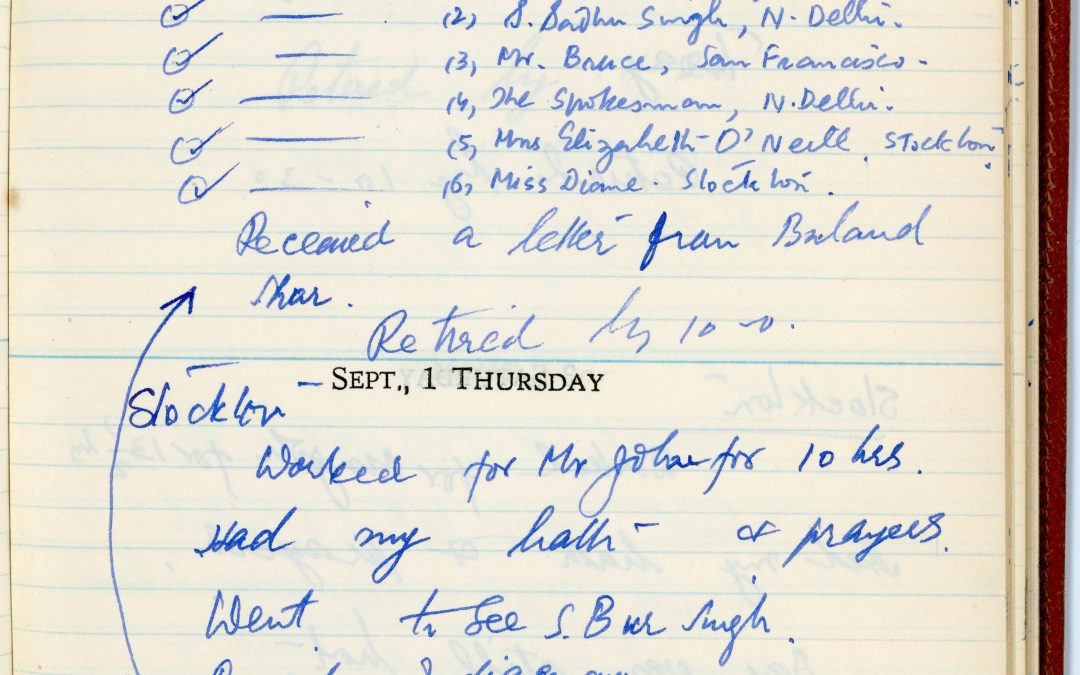 (2) S. Sadhu Singh, N. Delhi.
(3) Mr. Bruce, San Francisco.
(4) The Spokesman, N. Delhi.
(5) Mrs Elizabeth O'Neill, Stockton
(6) Miss Diane. Stockton.
Received a letter from Buland
Shar.
Retired by 10-0.
SEPT., 1 THURSDAY
Stockton
Worked for Mr John for 10 hrs.
Had my bath & prayers.
Went to See S. Bur Singh.